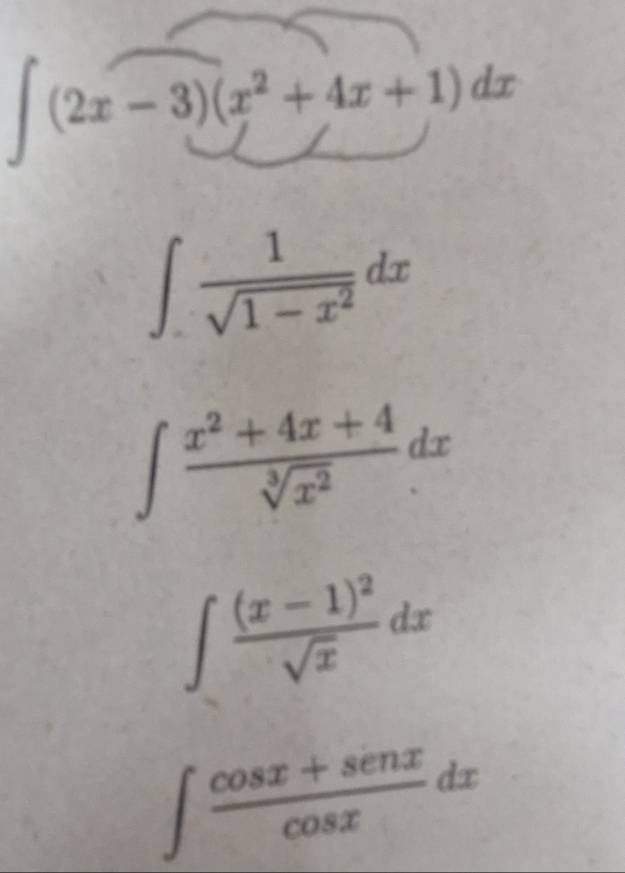 ∫ (2x − 3)(x² + 4x + 1) dx
∫ 1/√(1 − x²) dx
∫ (x² + 4x + 4)/∛(x²) dx
∫ (x − 1)²/√x dx
∫ (cosx + senx)/cosx dx